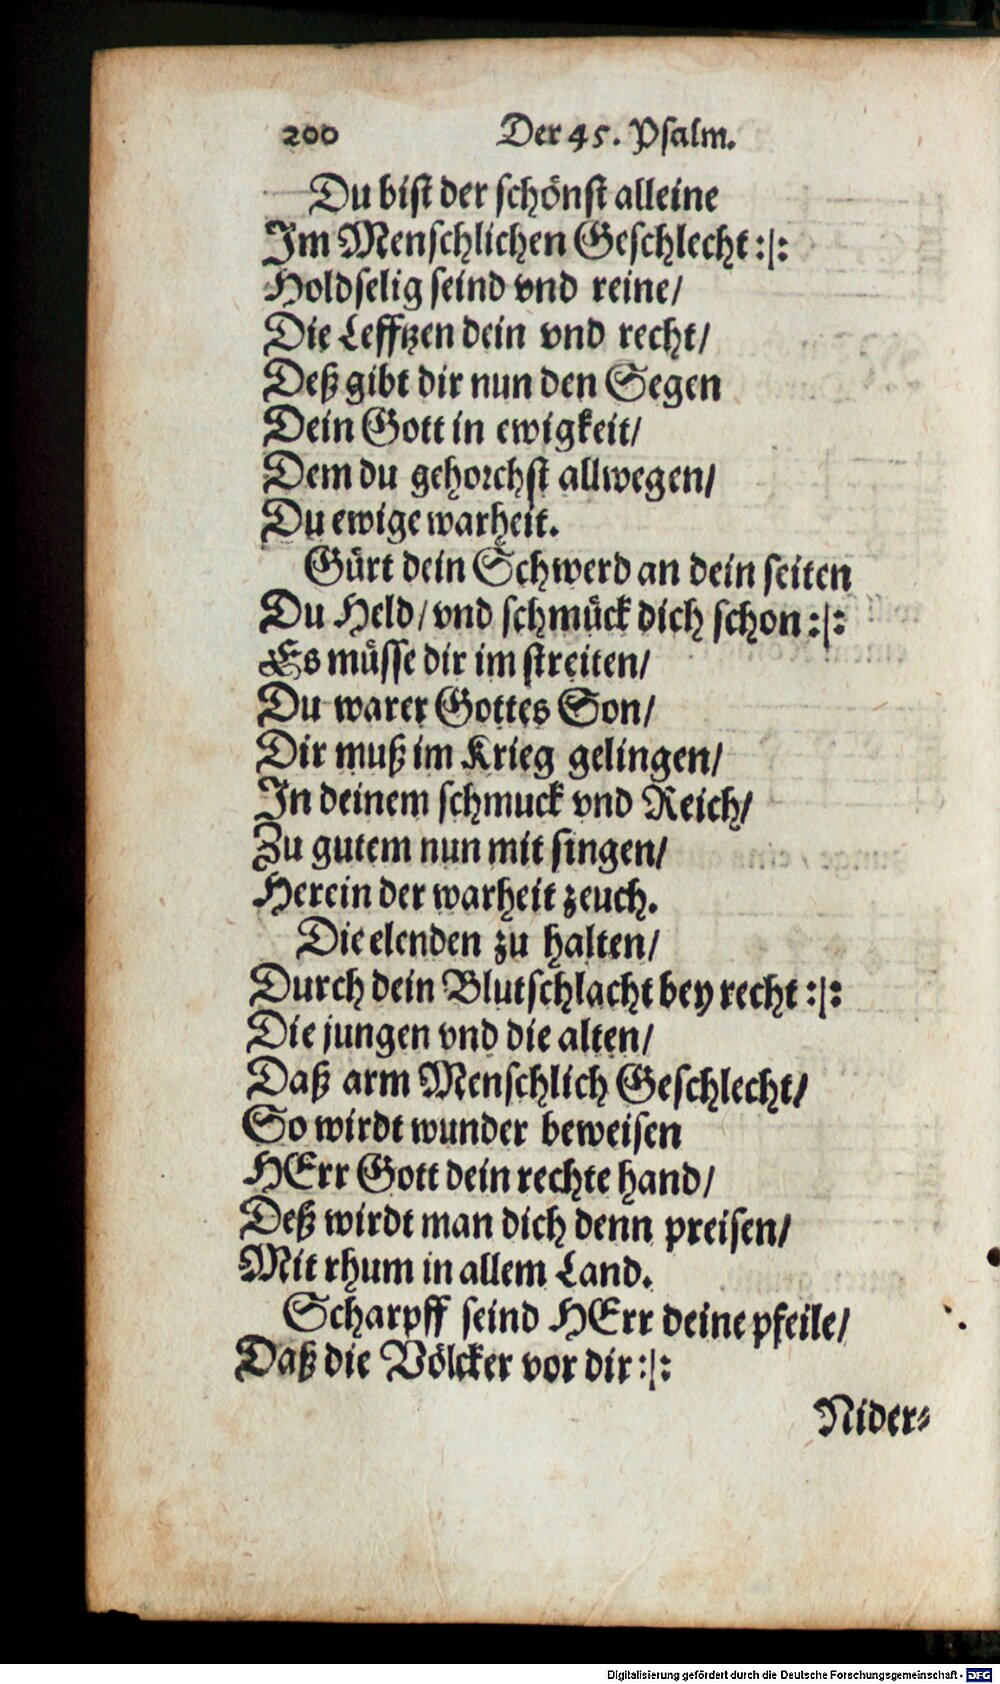 200 Der 45. Psalm.
Du bist der schönst alleine
Im Menschlichen Geschlecht :|:
Holdselig seind vnd reine/
Die Lefftzen dein vnd recht/
Deß gibt dir nun den Segen
Dein Gott in ewigkeit/
Dem du gehorchst allwegen/
Du ewige warheit.
Gürt dein Schwerd an dein seiten
Du Held/ vnd schmück dich schon :|:
Es müsse dir im streiten/
Du warer Gottes Son/
Dir muß im Krieg gelingen/
In deinem schmuck vnd Reich/
Zu gutem nun mit singen/
Herein der warheit zeuch.
Die elenden zu halten/
Durch dein Blutschlacht bey recht :|:
Die jungen vnd die alten/
Daß arm Menschlich Geschlecht/
So wirdt wunder beweisen
HErr Gott dein rechte hand/
Deß wirdt man dich denn preisen/
Mit rhum in allem Land.
Scharpff seind HErr deine pfeile/
Daß die Völcker vor dir :|:
Nider-
Digitalisierung gefördert durch die Deutsche Forschungsgemeinschaft - DFG